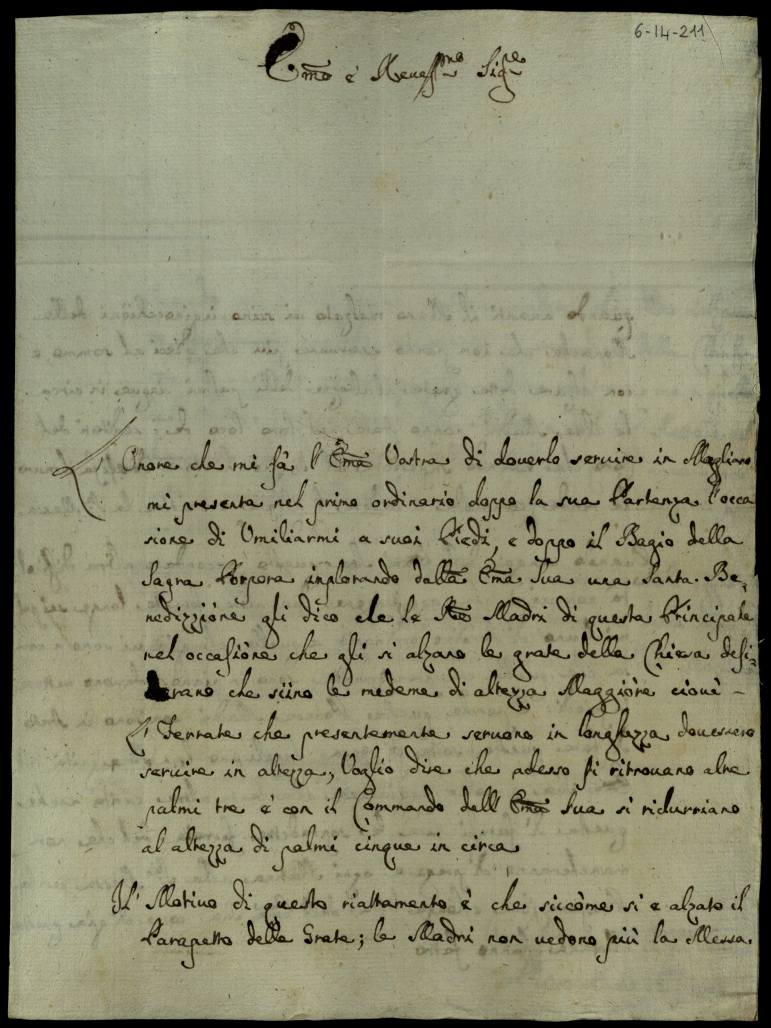 6-14-211
Em̃o è Reveſſ.mo Sig.re
L' Onore che mi fà l' Em̃a Vostra di doverlo servire in Magliano
mi presenta nel primo ordinario doppo la sua Partenza l'occa
sione di Umiliarmi a suoi Piedi, e doppo il Bagio della
Sagra Porpora inplorando dalla Em̃a Sua una Santa Be,
nedizzióne gli dico che le Madri di questa Principale
nel occaſióne che gli si alzano le grate della Chiesa deſi,
derano che siino le medeme di altezza Maggióre cioué -
L' Ferrate che presentemente servono in longhezza dovessero
servire in altezza, Voglio dire che adesso ſi ritrovano alte
palmi tre è con il Commando dell' Em̃a Sua si ridurriano
al altezza di palmi cinque in circa
Il' Motivo di questo riattamento è che siccóme si e alzato il
Parapetto delle Grate; le Madri non vedono più la Messa.